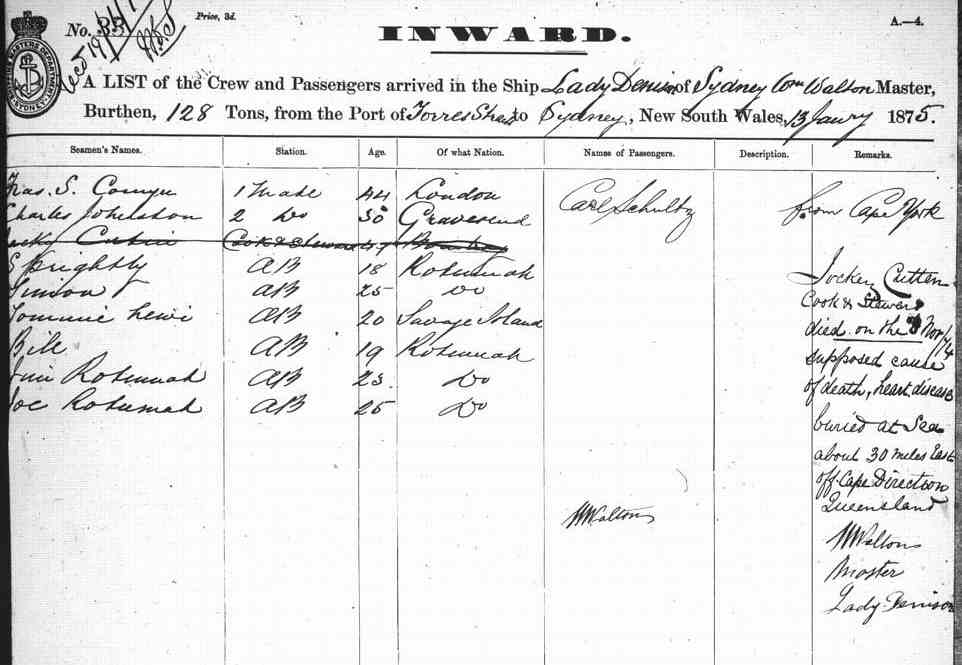 No. 33
Price, 3d.
INWARD.
A.—4.
A LIST of the Crew and Passengers arrived in the Ship Lady Denison of Sydney Wm Walton Master,
Burthen, 128 Tons, from the Port of Torres Straits to Sydney, New South Wales, 13 Janry 1875.
Seamen's Names. Station. Age. Of what Nation. Names of Passengers. Description. Remarks.
S. 1 Mate 44 London Carl Schultz from Cape York
Charles Johnston 2 Do 30 Gravesend
Cook & Steward
Sprightly AB 18 Rotumah
Simon AB 25 Do
Tommie Lewi AB 20 Savage Island
Bill AB 19 Rotumah
Jim Rotumah AB 23 Do
Joe Rotumah AB 25 Do
Cutten
Cook & Steward
died on the 8 Nov/74
supposed cause
of death, heart disease
buried at Sea
about 30 miles East
off Cape Direction
Queensland
WWalton
WWalton
Master
Lady Denison